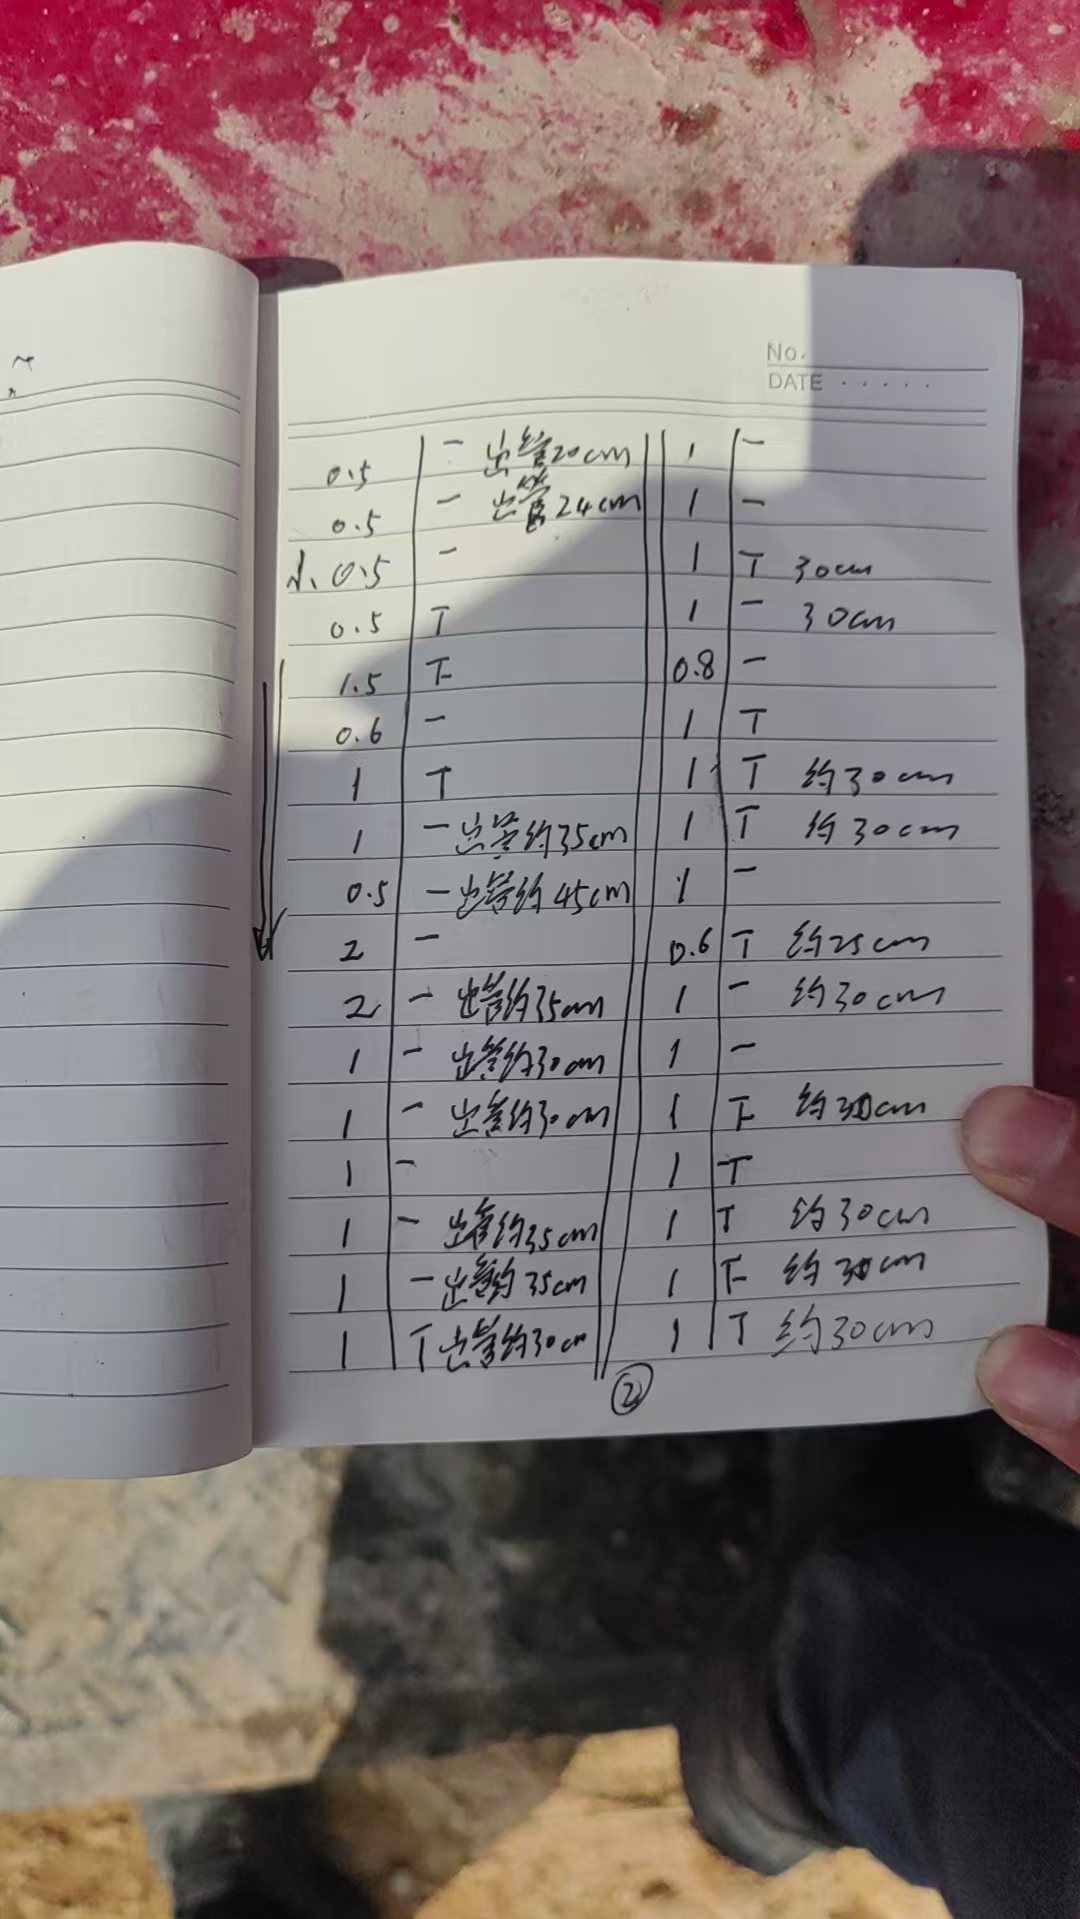 No.
DATE
0.5 一 出管20cm 1 一
0.5 一 出管24cm 1 一
0.5 一 1 T 30cm
0.5 T 1 一 30cm
1.5 下 0.8 一
0.6 一 1 T
1 T 1 T 约30cm
1 一 出管约35cm 1 T 约30cm
0.5 一 出管约45cm 1 一
2 一 0.6 T 约25cm
2 一 出管约35cm 1 一 约30cm
1 一 出管约30cm 1 一
1 一 出管约30cm 1 下 约30cm
1 一 1 T
1 一 出管约35cm 1 T 约30cm
1 一 出管约35cm 1 下 约30cm
1 T 出管约30cm 1 T 约30cm
②